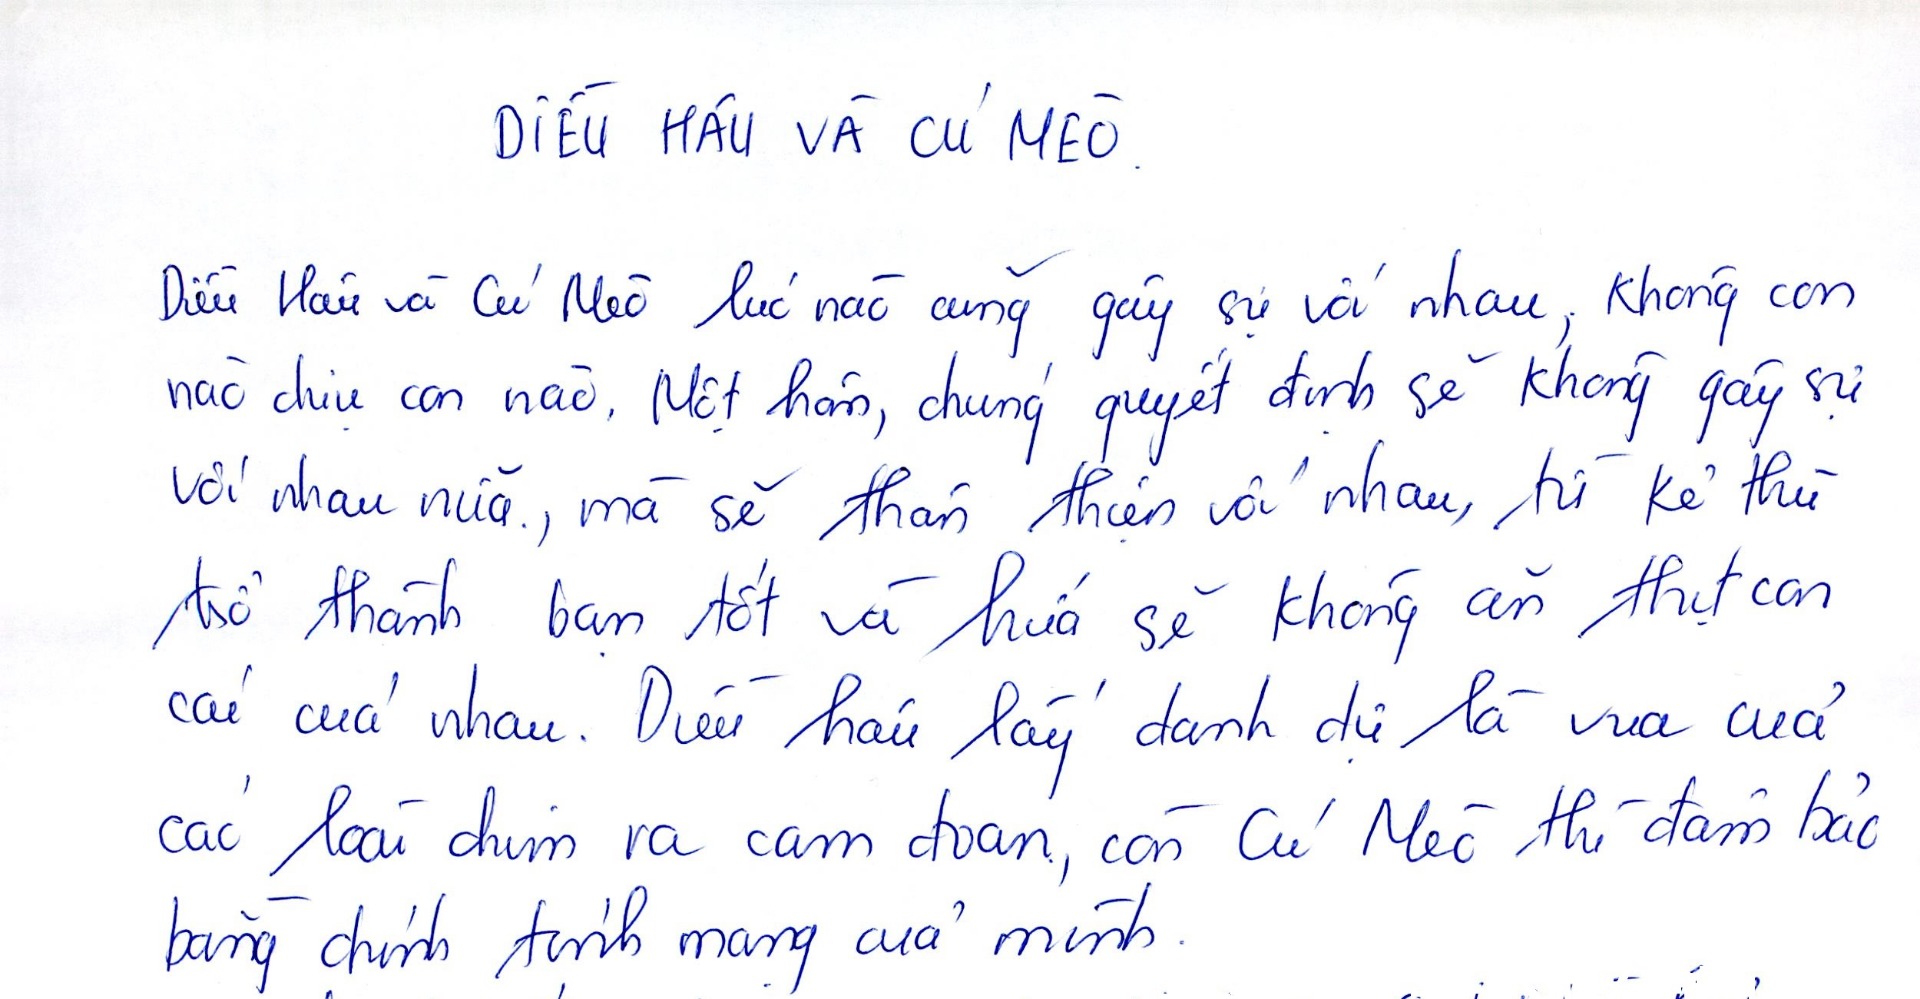 DIỀU HÂU VÀ CÚ MÈO.
Diều Hâu và Cú Mèo lúc nào cũng gây sự với nhau, không con
nào chịu con nào. Một hôm, chúng quyết định sẽ không gây sự
với nhau nữa, mà sẽ thân thiện với nhau, từ kẻ thù
trở thành bạn tốt và hứa sẽ không ăn thịt con
cái của nhau. Diều hâu lấy danh dự là vua của
các loài chim ra cam đoan, còn Cú Mèo thì đảm bảo
bằng chính tính mạng của mình.